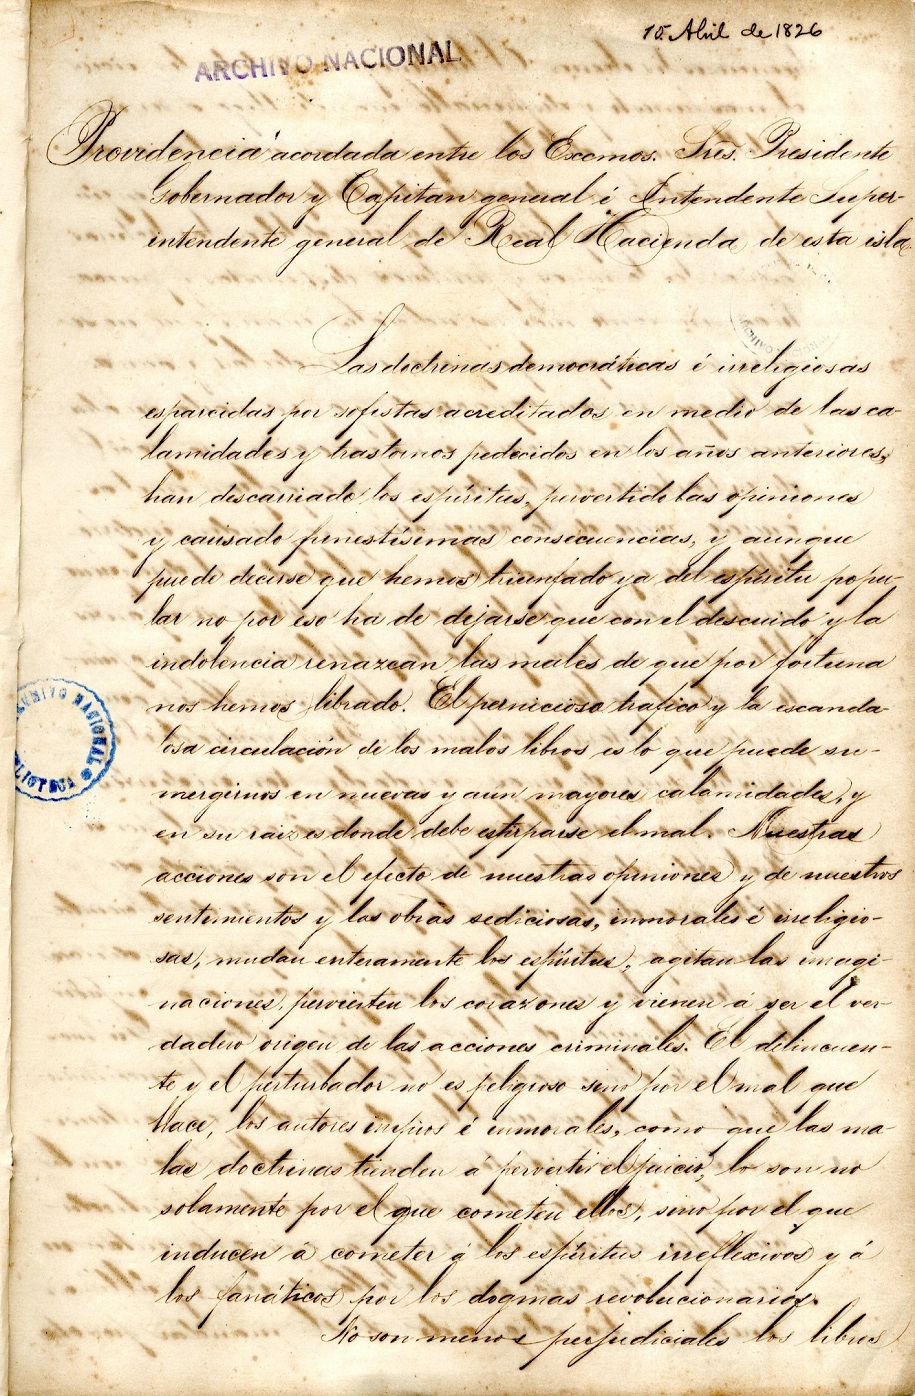 15. Abril de 1826
ARCHIVO NACIONAL
Providencia acordada entre los Excmos. Sres. Presidente
Gobernador y Capitan general é Intendente Super-
intendente general de Real Hacienda de esta isla.
Las doctrinas democráticas é irreligiosas
esparcidas por sofistas acreditados en medio de las ca-
lamidades y trastornos padecidos en los años anteriores,
han descarriado los espíritus, pervertido las opiniones
y causado funestísimas consecuencias, y aunque
puede decirse que hemos triunfado ya del espíritu popu-
lar no por eso ha de dejarse que con el descuido y la
indolencia renazcan los males de que por fortuna
nos hemos librado. El pernicioso trafico y la escanda-
losa circulación de los malos libros es lo que puede su-
mergirnos en nuevas y aun mayores calamidades, y
en su raiz es donde debe estirparse el mal. Nuestras
acciones son el efecto de nuestras opiniones y de nuestros
sentimientos y las obras sediciosas, inmorales é irreligio-
sas, mudan enteramente los espíritus, agitan las imagi-
naciones, pervierten los corazones y vienen á ser el ver-
dadero origen de las acciones criminales. El delincuen-
te y el perturbador no es peligroso sino por el mal que
hace, los autores impios é inmorales, como que las ma-
las doctrinas tienden á pervertir el juicio, lo son no
solamente por el que cometen ellos, sino por el que
inducen á cometer á los espíritus irreflexivos y á
los fanáticos por los dogmas revolucionarios.
No son menos perjudiciales los libros
ARCHIVO NACIONAL
BIBLIOTECA